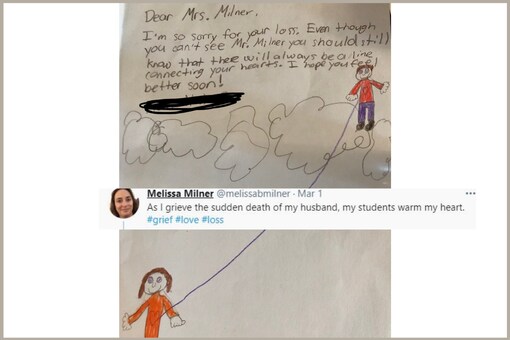 Dear Mrs. Milner,
I'm so sorry for your loss. Even though
you can't see Mr. Milner you should still
know that thee will always be a line
connecting your hearts. I hope you feel
better soon!
Melissa Milner @melissabmilner · Mar 1
As I grieve the sudden death of my husband, my students warm my heart.
#grief #love #loss